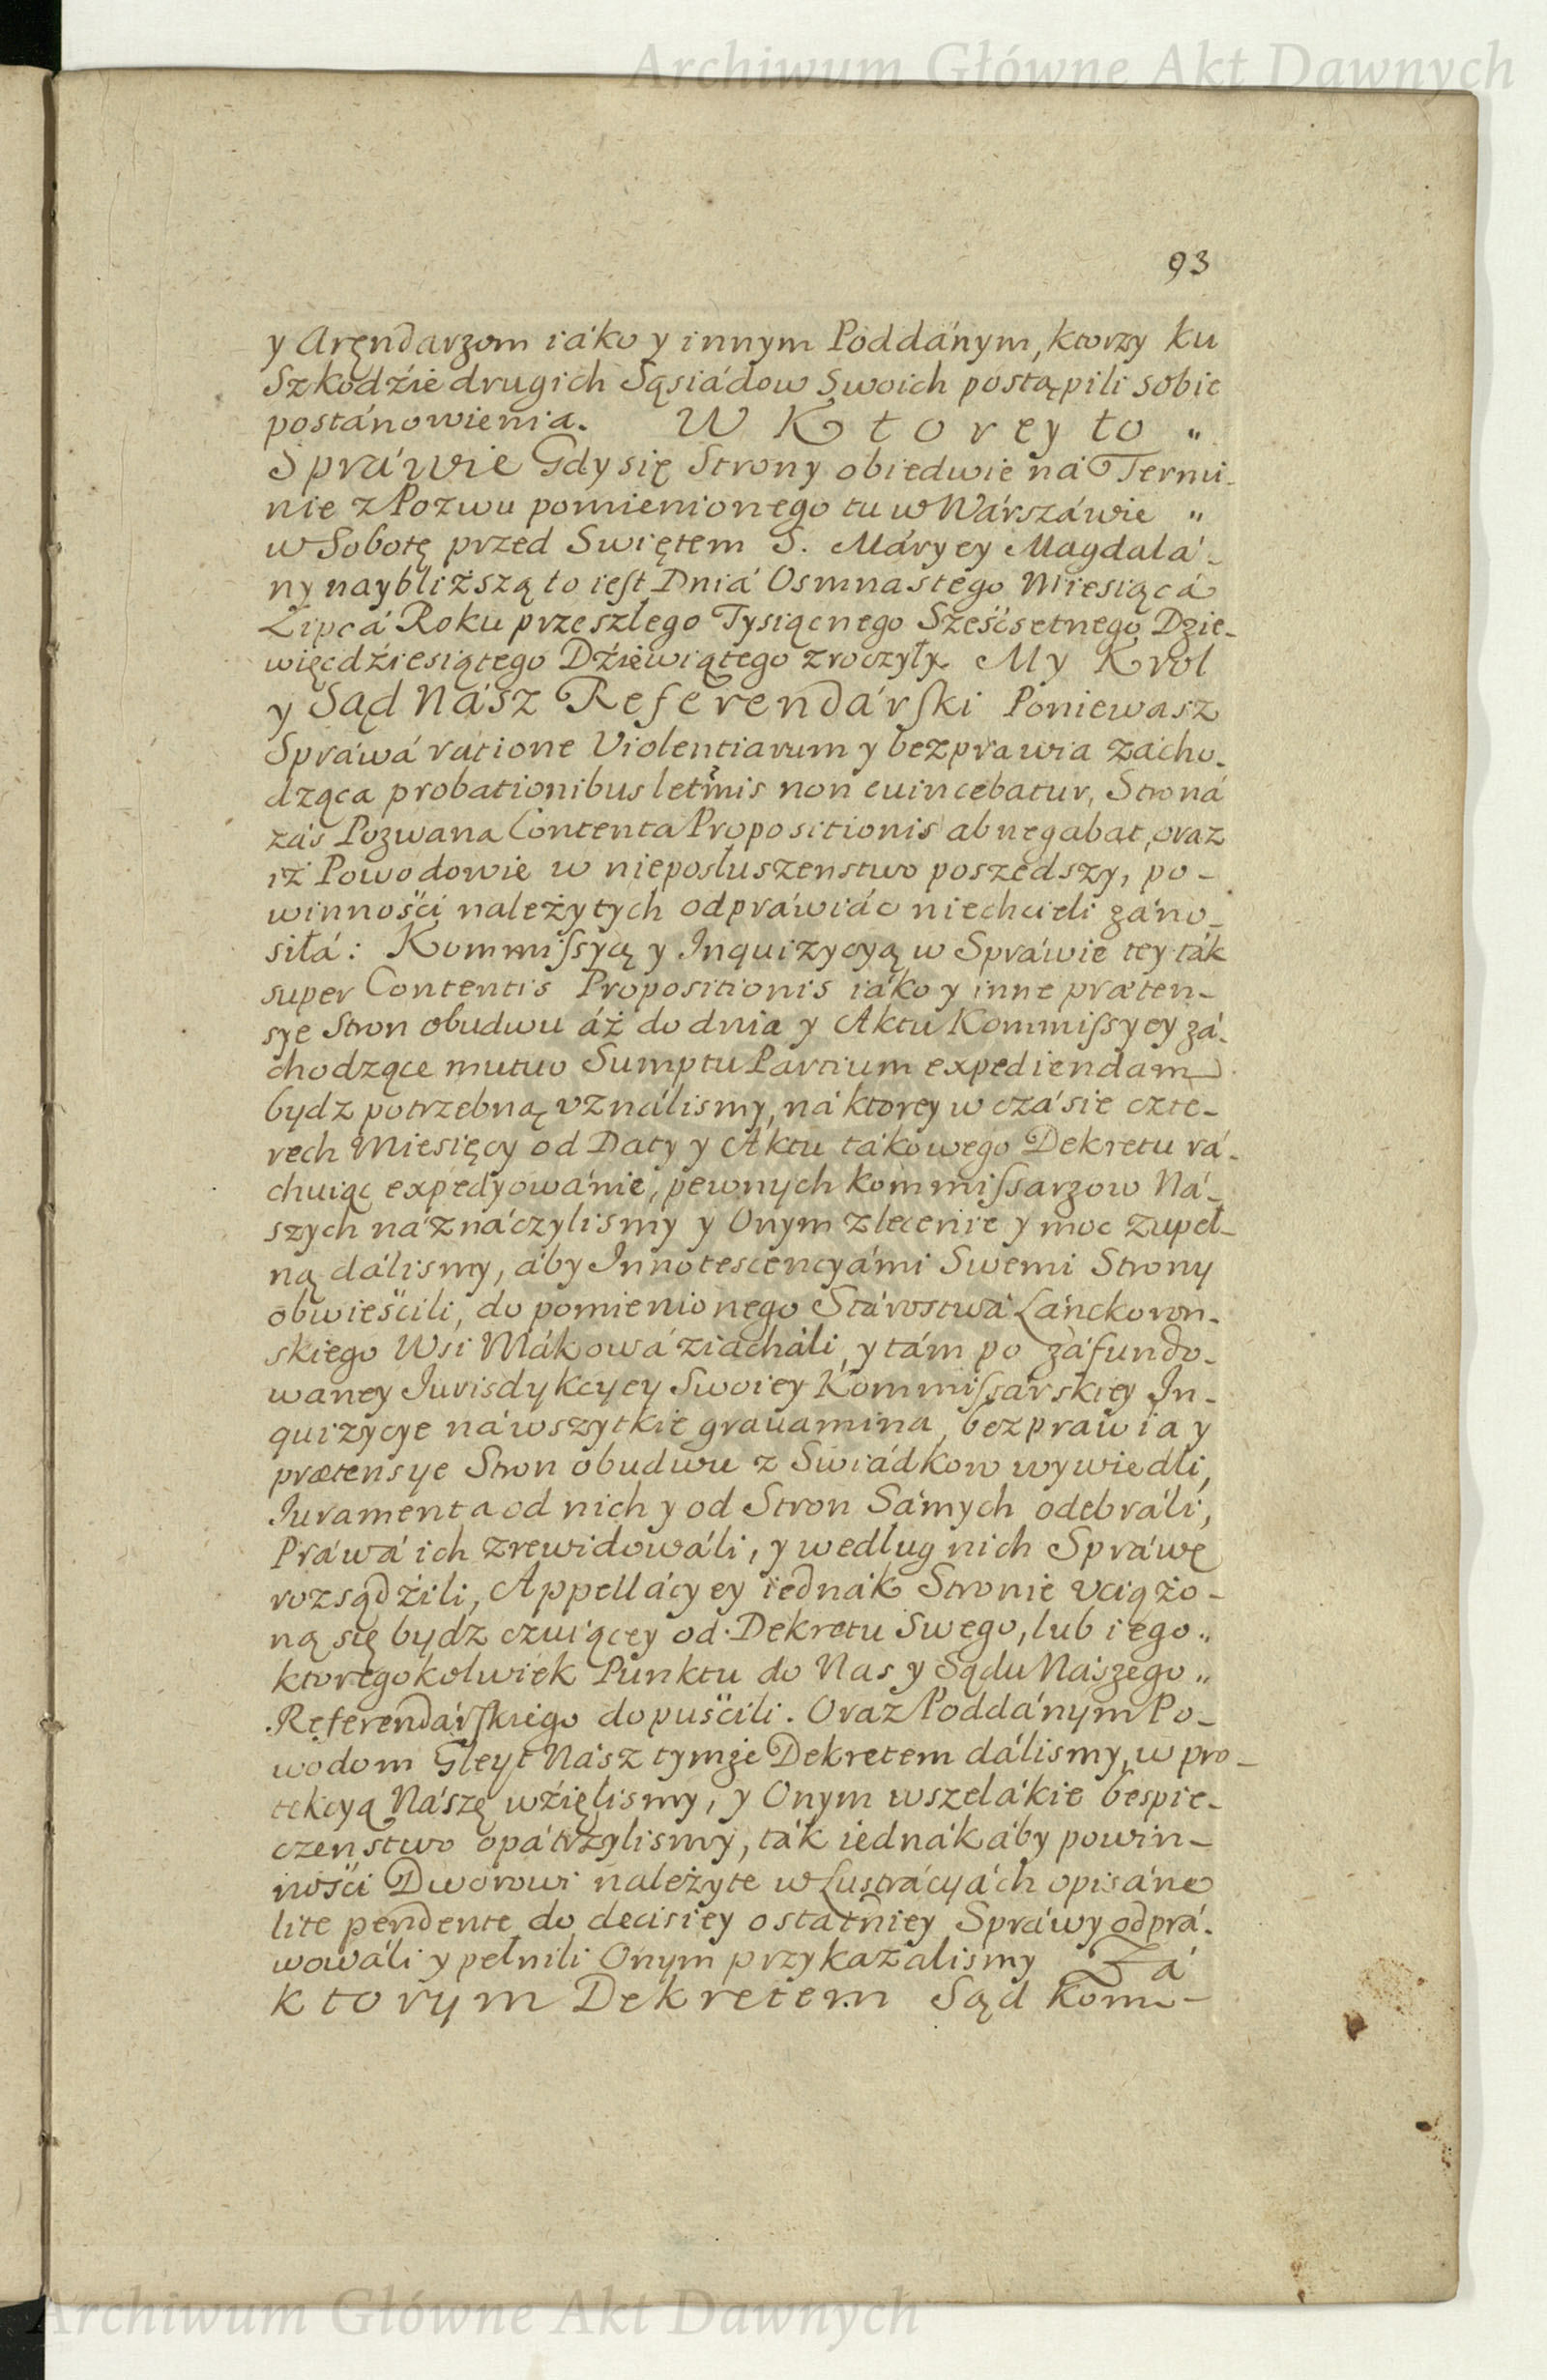 Archiwum Główne Akt Dawnych
93
y Aręndarzom iáko y innym Poddánym, ktorzy ku
Szkodźie drugich Sąsiádow Swoich postąpili sobie
postánowienia. W Ktorey to „
Spráwie Gdy się Strony obiedwie ná Termi-
nie z Pozwu pomienionego tu w Wárszáwie „
w Sobotę przed Swiętem S. Máryey Magdalá-
ny naybliższą to iest Dniá Osmnastego Miesiącá
Lipcá Roku przeszłego Tysiącnego Sześćsetnego Dzie-
więcdźiesiątego Dźiewiątego zroczyły. My Krol
y Sąd Nász Referendárski Poniewasz
Spráwá ratione Violentiarum y bezprawia zácho-
dząca probationibus letmis non euincebatur, Stroná
záś Pozwana Contenta Propositionis abnegabat, oraz
iż Powodowie w nieposłuszenstwo poszedszy, po-
winności należytych odpráwiáć niechcieli záno-
siłá: Kommissyą y Inquizycyą w Spráwie tey ták
super Contentis Propositionis iáko y inne præten-
sye Stron obudwu áż do dnia y Aktu Kommissyey zá-
chodzące mutuo Sumptu Partium expediendam
bydz potrzebną vználismy, ná ktorey w czásie czte-
rech Miesięcy od Daty y Aktu tákowego Dekretu rá-
chuiąc expedyowánie, pewnych Kommissarzow Ná-
szych náznáczylismy y Onym zlecenie y moc zupeł-
ną dálismy, áby Innotescencyámi Swemi Strony
obwieścili, do pomienionego Stárostwá Lánckoron-
skiego Wsi Mákowá ziacháli, y tám po záfundo-
waney Iurisdykcyey Swoiey Kommissárskiey In-
quizycye ná wszytkie grauamina, bezprawia y
prætensye Stron obudwu z Swiádkow wywiedli,
Iuramenta od nich y od Stron Sámych odebráli,
Práwá ich zrewidowáli, y według nich Spráwę
rozsądźili, Appellácyey iednák Stronie vciążo-
ną się bydz czuiącey od Dekretu Swego, lub iego „
ktoregokolwiek Punktu do Nas y Sądu Nászego „
Referendárskiego dopuścili. Oraz Poddánym Po-
wodom Gleyt Nász tymże Dekretem dálismy, w pro-
tekcyą Nászę wźięlismy, y Onym wszelákie bespie-
czenstwo opátrzylismy, ták iednák áby powin-
ności Dworowi należyte w Lustrácyách opisáne
lite pendente do decisiey ostátniey Spráwy odprá-
wowáli y pełnili Onym przykazalismy Zá
ktorym Dekretem Sąd Kom-
Archiwum Główne Akt Dawnych